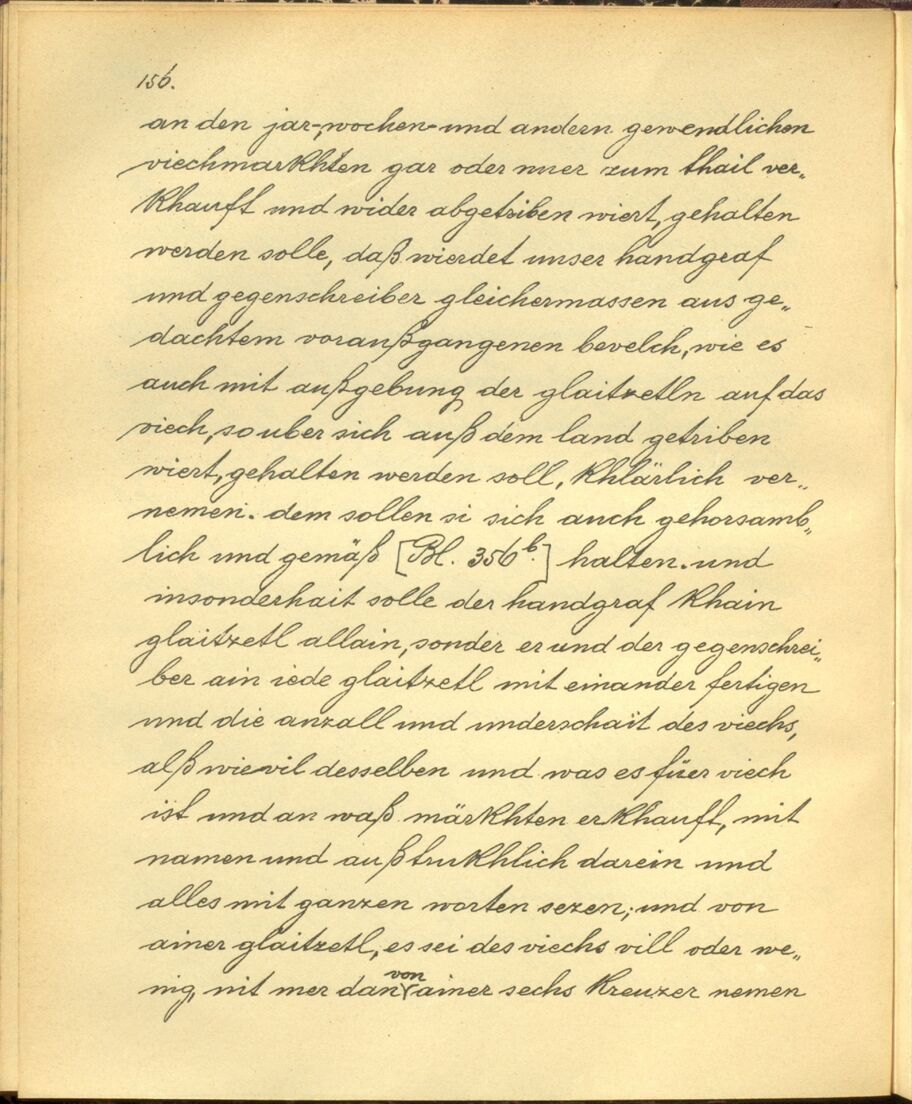 156.
an den jar-, wochen- und andern gewendlichen
viechmarkhten gar oder nuer zum thail ver„
khauft und wider abgetriben wiert, gehalten
werden solle, daß wierdet unser handgraf
und gegenschreiber gleichermassen aus ge„
dachtem voraußgangenen bevelch, wie es
auch mit außgebung der glaitzetln auf das
viech, so uber sich auß dem land getriben
wiert, gehalten werden soll, khlärlich ver„
nemen. dem sollen si sich auch gehorsamb„
lich und gemäß [Bl. 356b.] halten. und
insonderhait solle der handgraf khain
glaitzetl allain, sonder er und der gegenschrei„
ber ain iede glaitzetl mit einander fertigen
und die anzall und underschait des viechs,
alß wievil desselben und was es füer viech
ist und an waß märkhten erkhauft, mit
namen und außtrukhlich darein und
alles mit ganzen worten sezen; und von
ainer glaitzetl, es sei des viechs vill oder we„
nig, nit mer dan von ainer sechs kreuzer nemen